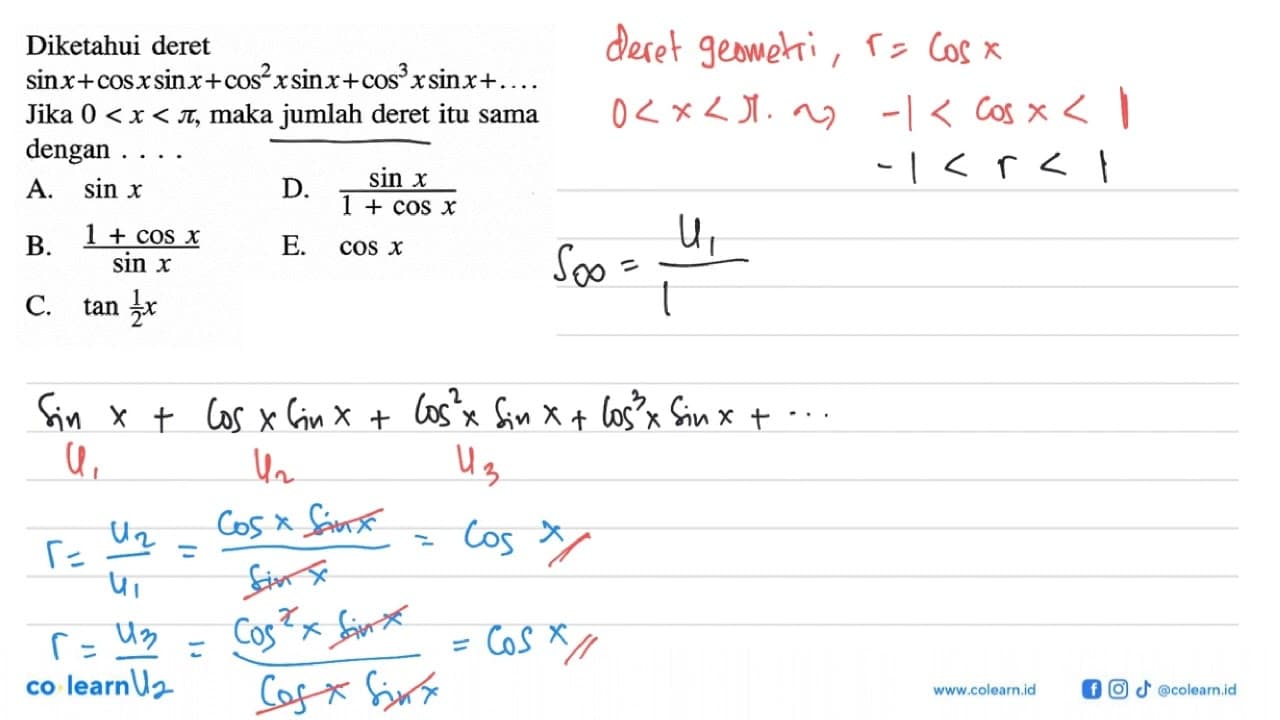 Diketahui deret
sin x + cos x sin x + cos² x sin x + cos³ x sin x + ....
Jika 0 < x < π, maka jumlah deret itu sama
dengan . . . .
A. sin x
B. (1 + cos x)/(sin x)
C. tan ½x
D. (sin x)/(1 + cos x)
E. cos x
deret geometri, r = cos x
0 < x < π. ⇝ -1 < cos x < 1
-1 < r < 1
S∞ = U₁/1
Sin x + Cos x Sin x + Cos² x Sin x + Cos³ x Sin x + ...
U₁ U₂ U₃
r = U₂/U₁ = (Cos x Sin x)/(Sin x) = Cos x //
r = U₃/U₂ = (Cos² x Sin x)/(Cos x Sin x) = Cos x //
co learn
www.colearn.id @colearn.id